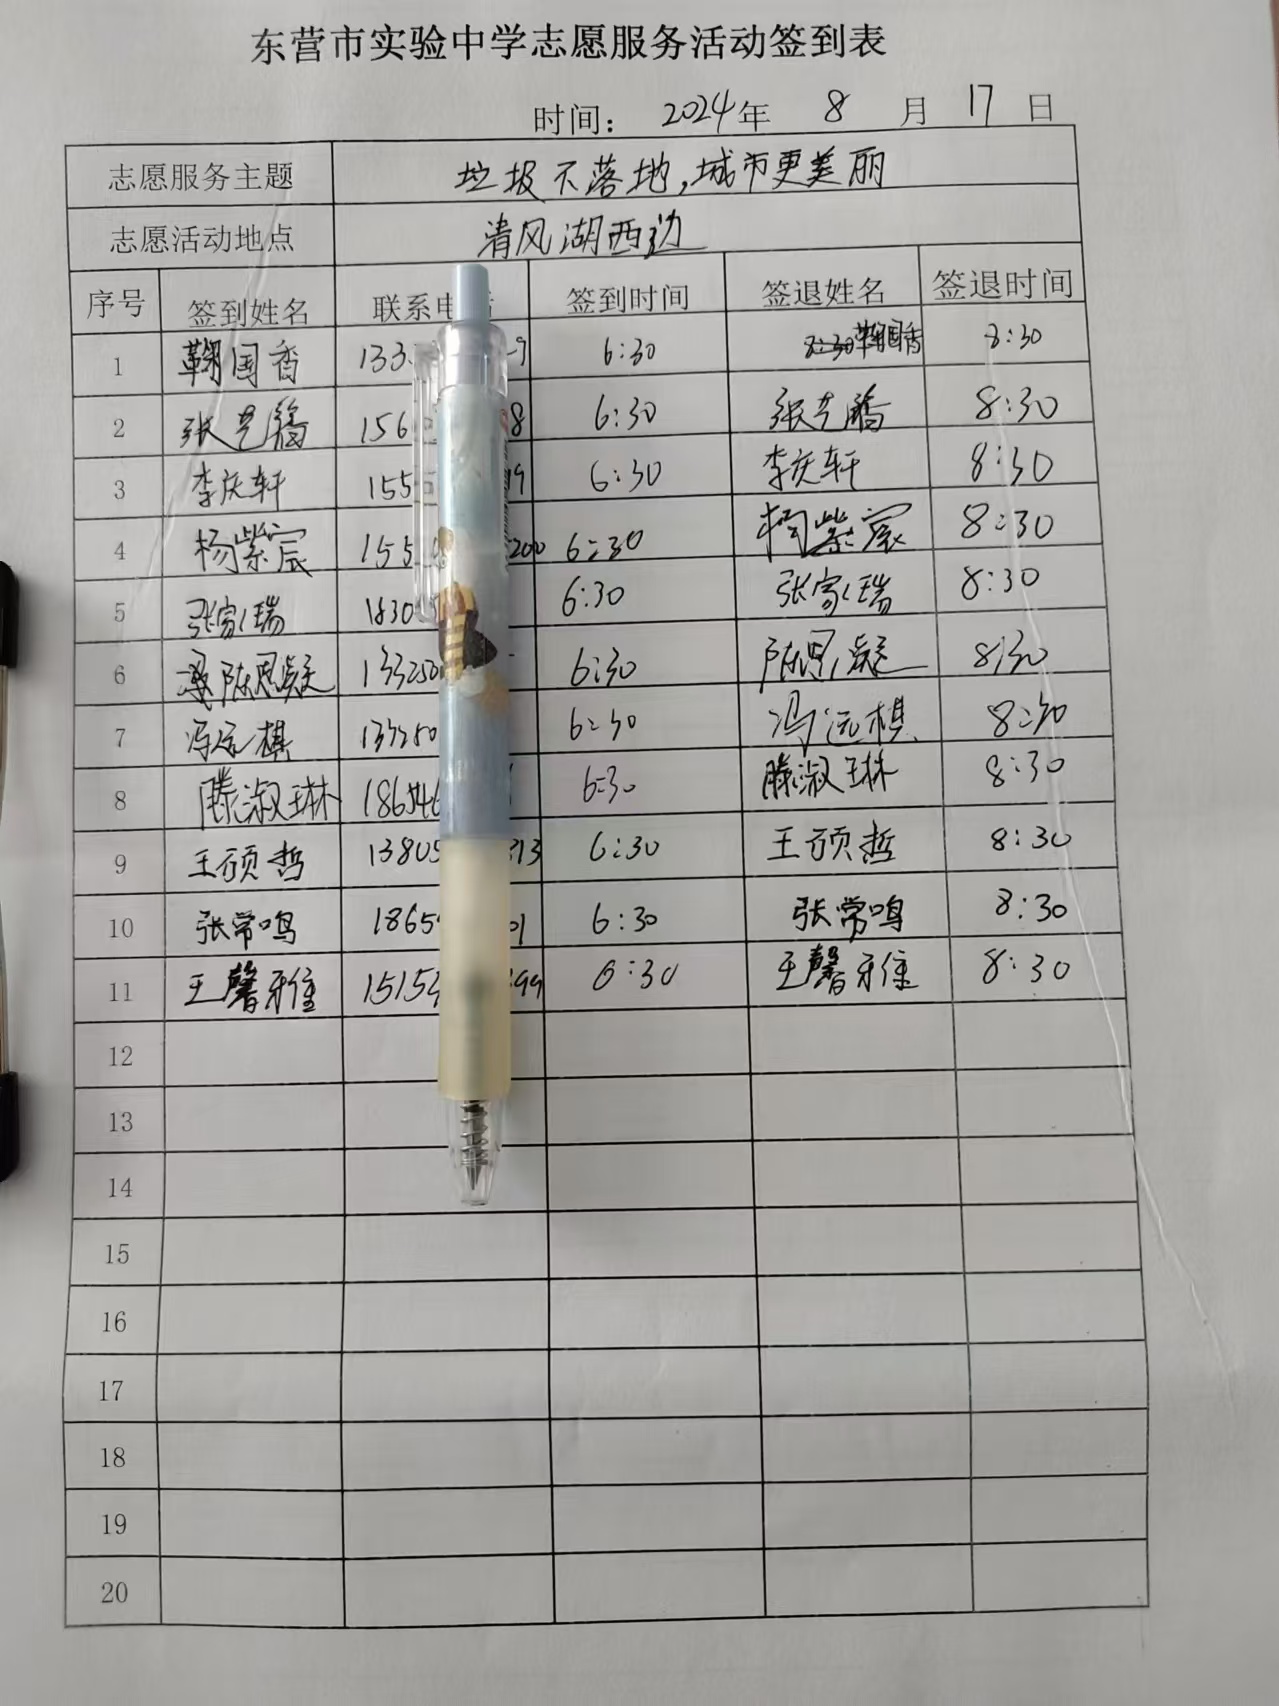 东营市实验中学志愿服务活动签到表
时间： 2024年 8 月 17 日
志愿服务主题 垃圾不落地,城市更美丽
志愿活动地点 清风湖西边
序号 签到姓名 联系电 签到时间 签退姓名 签退时间
1 鞠国香 133 9 6:30 鞠国香 8:30
2 张艺 156 8 6:30 张艺 8:30
3 李庆轩 155 19 6:30 李庆轩 8:30
4 杨紫宸 155 200 6:30 杨紫宸 8:30
5 张家瑞 1830 6:30 张家瑞 8:30
6 陈思凝 133250 6:30 陈思凝 8:30
7 冯远棋 133250 6:30 冯远棋 8:30
8 滕淑琳 186546 6:30 滕淑琳 8:30
9 王硕哲 13805 313 6:30 王硕哲 8:30
10 张常鸣 1865 01 6:30 张常鸣 8:30
11 王馨雅 1515 99 6:30 王馨雅 8:30
12
13
14
15
16
17
18
19
20